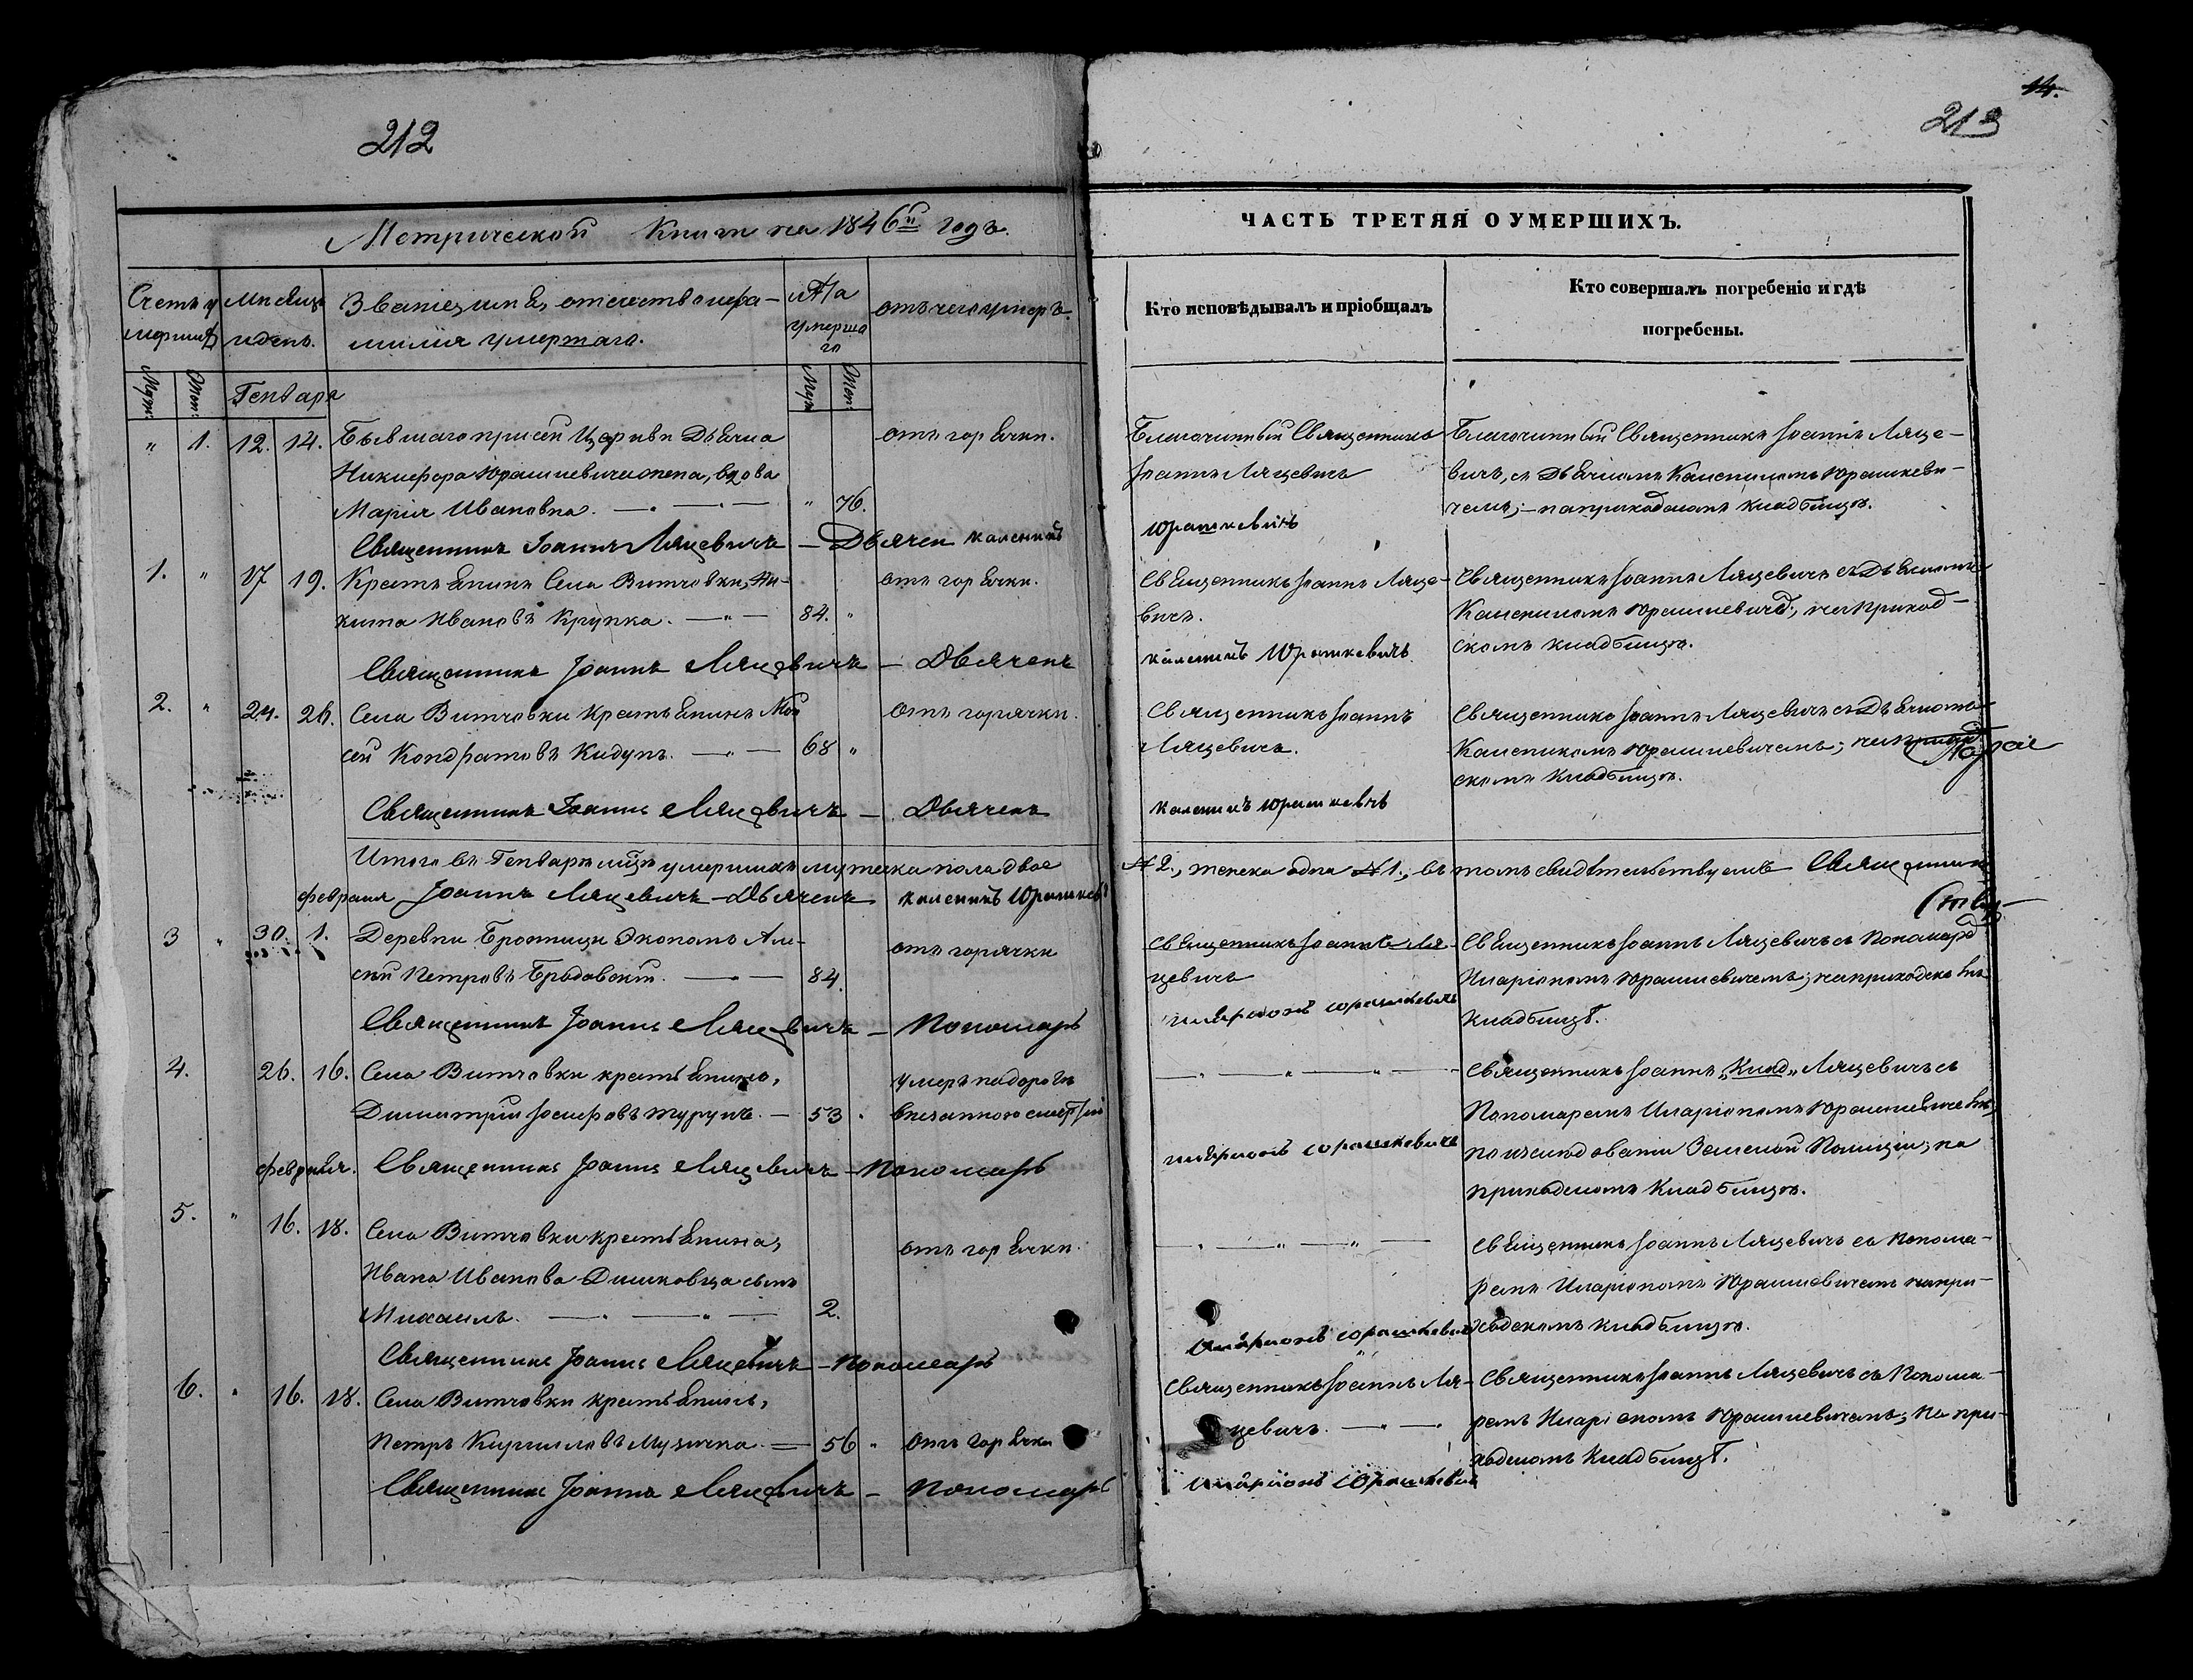 212
Метрической Книги на 1846й годъ.
Счетъ умершихъ
Мѣсяцъ и день.
Званіе, имя, отчество и фамилія умершаго.
Лѣта умершаго
отъ чего умеръ.
Муж:
Жен:
Генваря
Муж:
Жен:
" 1. 12. 14. Бывшаго при сей Церкви Дьячка отъ горячки.
Никифора Юрашкевича жена, вдова
Марія Ивановна. " 76.
Священникъ Іоаннъ Ляцевичъ – Дьячекъ Каленикъ
1. " 17 19. Крестьянинъ Села Витчовки, Ни- отъ горячки.
кита Ивановъ Крупка. 84. "
Священникъ Іоаннъ Ляцевичъ – Дьячекъ
2. " 24. 26. Села Витчовки крестьянинъ Мои отъ горячки.
сей Кондратовъ Кидунъ. 68 "
Священникъ Іоаннъ Ляцевичъ – Дьячекъ
Итого въ Генварѣ мцѣ умершихъ мужеска пола двое
февраля Іоаннъ Ляцевичъ – Дьячекъ Каленикъ Юрашкевичъ
3 " 30. 1. Деревни Бродницы Экономъ Але- отъ горячки
сѣй Петровъ Бродовскій. 84.
Священникъ Іоаннъ Ляцевичъ – Пономаръ
4. 26. 16. Села Витчовки крестьянинъ, умеръ надорогѣ
Димитрій Іосифовъ Турунъ. – 53 " внезапною смертію
февраля. Священникъ Іоаннъ Ляцевичъ – Пономаръ
5. " 16. 18. Села Витчовки крестьянина, отъ горячки.
Ивана Иванова Димковца сынъ
Михаилъ. 2.
Священникъ Іоаннъ Ляцевичъ – Пономаръ
6. " 16. 18. Села Витчовки крестьянинъ,
Петръ Кирилловъ Музычка. 56 " отъ горячки
Священникъ Іоаннъ Ляцевичъ – Пономаръ
14.
213
ЧАСТЬ ТРЕТЯЯ О УМЕРШИХЪ.
Кто исповѣдывалъ и пріобщалъ
Кто совершалъ погребеніе и гдѣ
погребены.
Благочинный Священникъ Благочинный Священникъ Іоаннъ Ляце-
Іоаннъ Ляцевичъ вичъ, съ Дьячкомъ Каленикомъ Юрашкеви-
чемъ; – на приходскомъ кладбищѣ.
Юрашкевичъ
Священникъ Іоаннъ Ляце- Священникъ Іоаннъ Ляцевичъ съ Дьячкомъ
вичъ. Каленикомъ Юрашкевичемъ; на приход-
скомъ кладбищѣ.
Каленикъ Юрашкевичъ
Священникъ Іоаннъ Священникъ Іоаннъ Ляцевичъ съ Дьячкомъ
Ляцевичъ. Каленикомъ Юрашкевичемъ; на приход-
скомъ кладбищѣ.
Каленикъ Юрашкевичъ
№ 2., женска одна № 1., въ томъ свидѣтельствуемъ Священникъ
Священникъ Іоаннъ Ля- Священникъ Іоаннъ Ляцевичъ съ Пономаремъ
цевичъ Иларіономъ Юрашкевичемъ; на приходскомъ
кладбищѣ.
Иларіонъ Юрашкевичъ
Священникъ Іоаннъ „Клад„ Ляцевичъ съ
Пономаремъ Иларіономъ Юрашкевичемъ,
по изслѣдованіи Земской Полиціи; на
приходскомъ кладбищѣ.
Иларіонъ Юрашкевичъ
Священникъ Іоаннъ Ляцевичъ съ Понома-
ремъ Иларіономъ Юрашкевичемъ на при-
ходскомъ кладбищѣ.
Иларіонъ Юрашкевичъ
Священникъ Іоаннъ Ля- Священникъ Іоаннъ Ляцевичъ съ Понома-
цевичъ. ремъ Иларіономъ Юрашкевичемъ; на при-
ходскомъ кладбищѣ.
Иларіонъ Юрашкевичъ